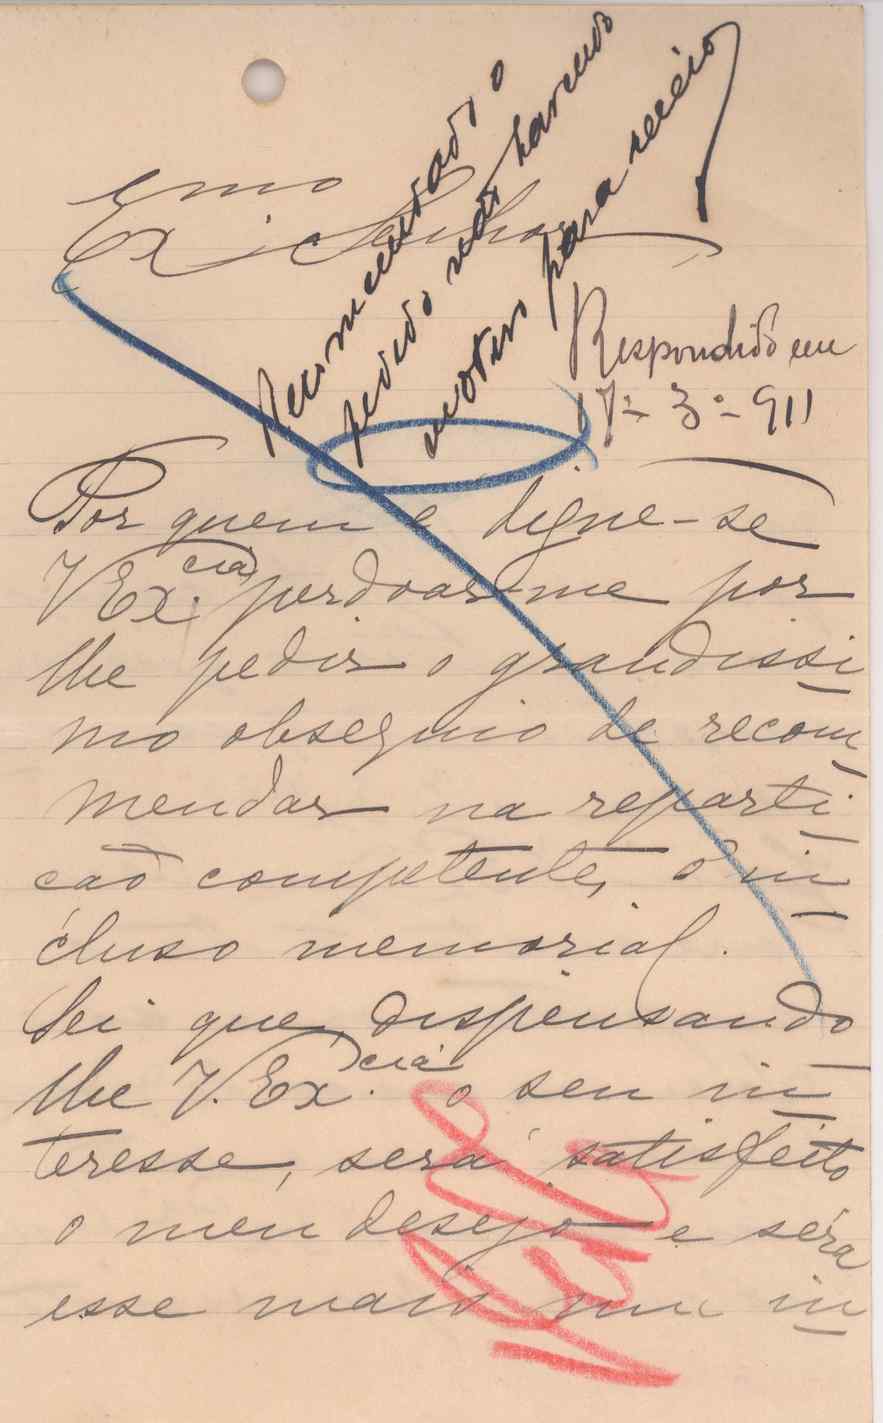 Exmo
Ex Senhor
Recommendado o
pedido não havendo
motivo para receio
Respondido em
17-3º-911
Por quem é digne-se
V Ex.cia perdoar-me por
lhe pedir o grandissi
mo obsequio de recom
mendar na reparti
cão competente, o in
cluso memorial.
Sei que, dispensando
lhe V. Ex.cia o seu in
teresse, será satisfeito
o meu desejo e será
esse mais um in